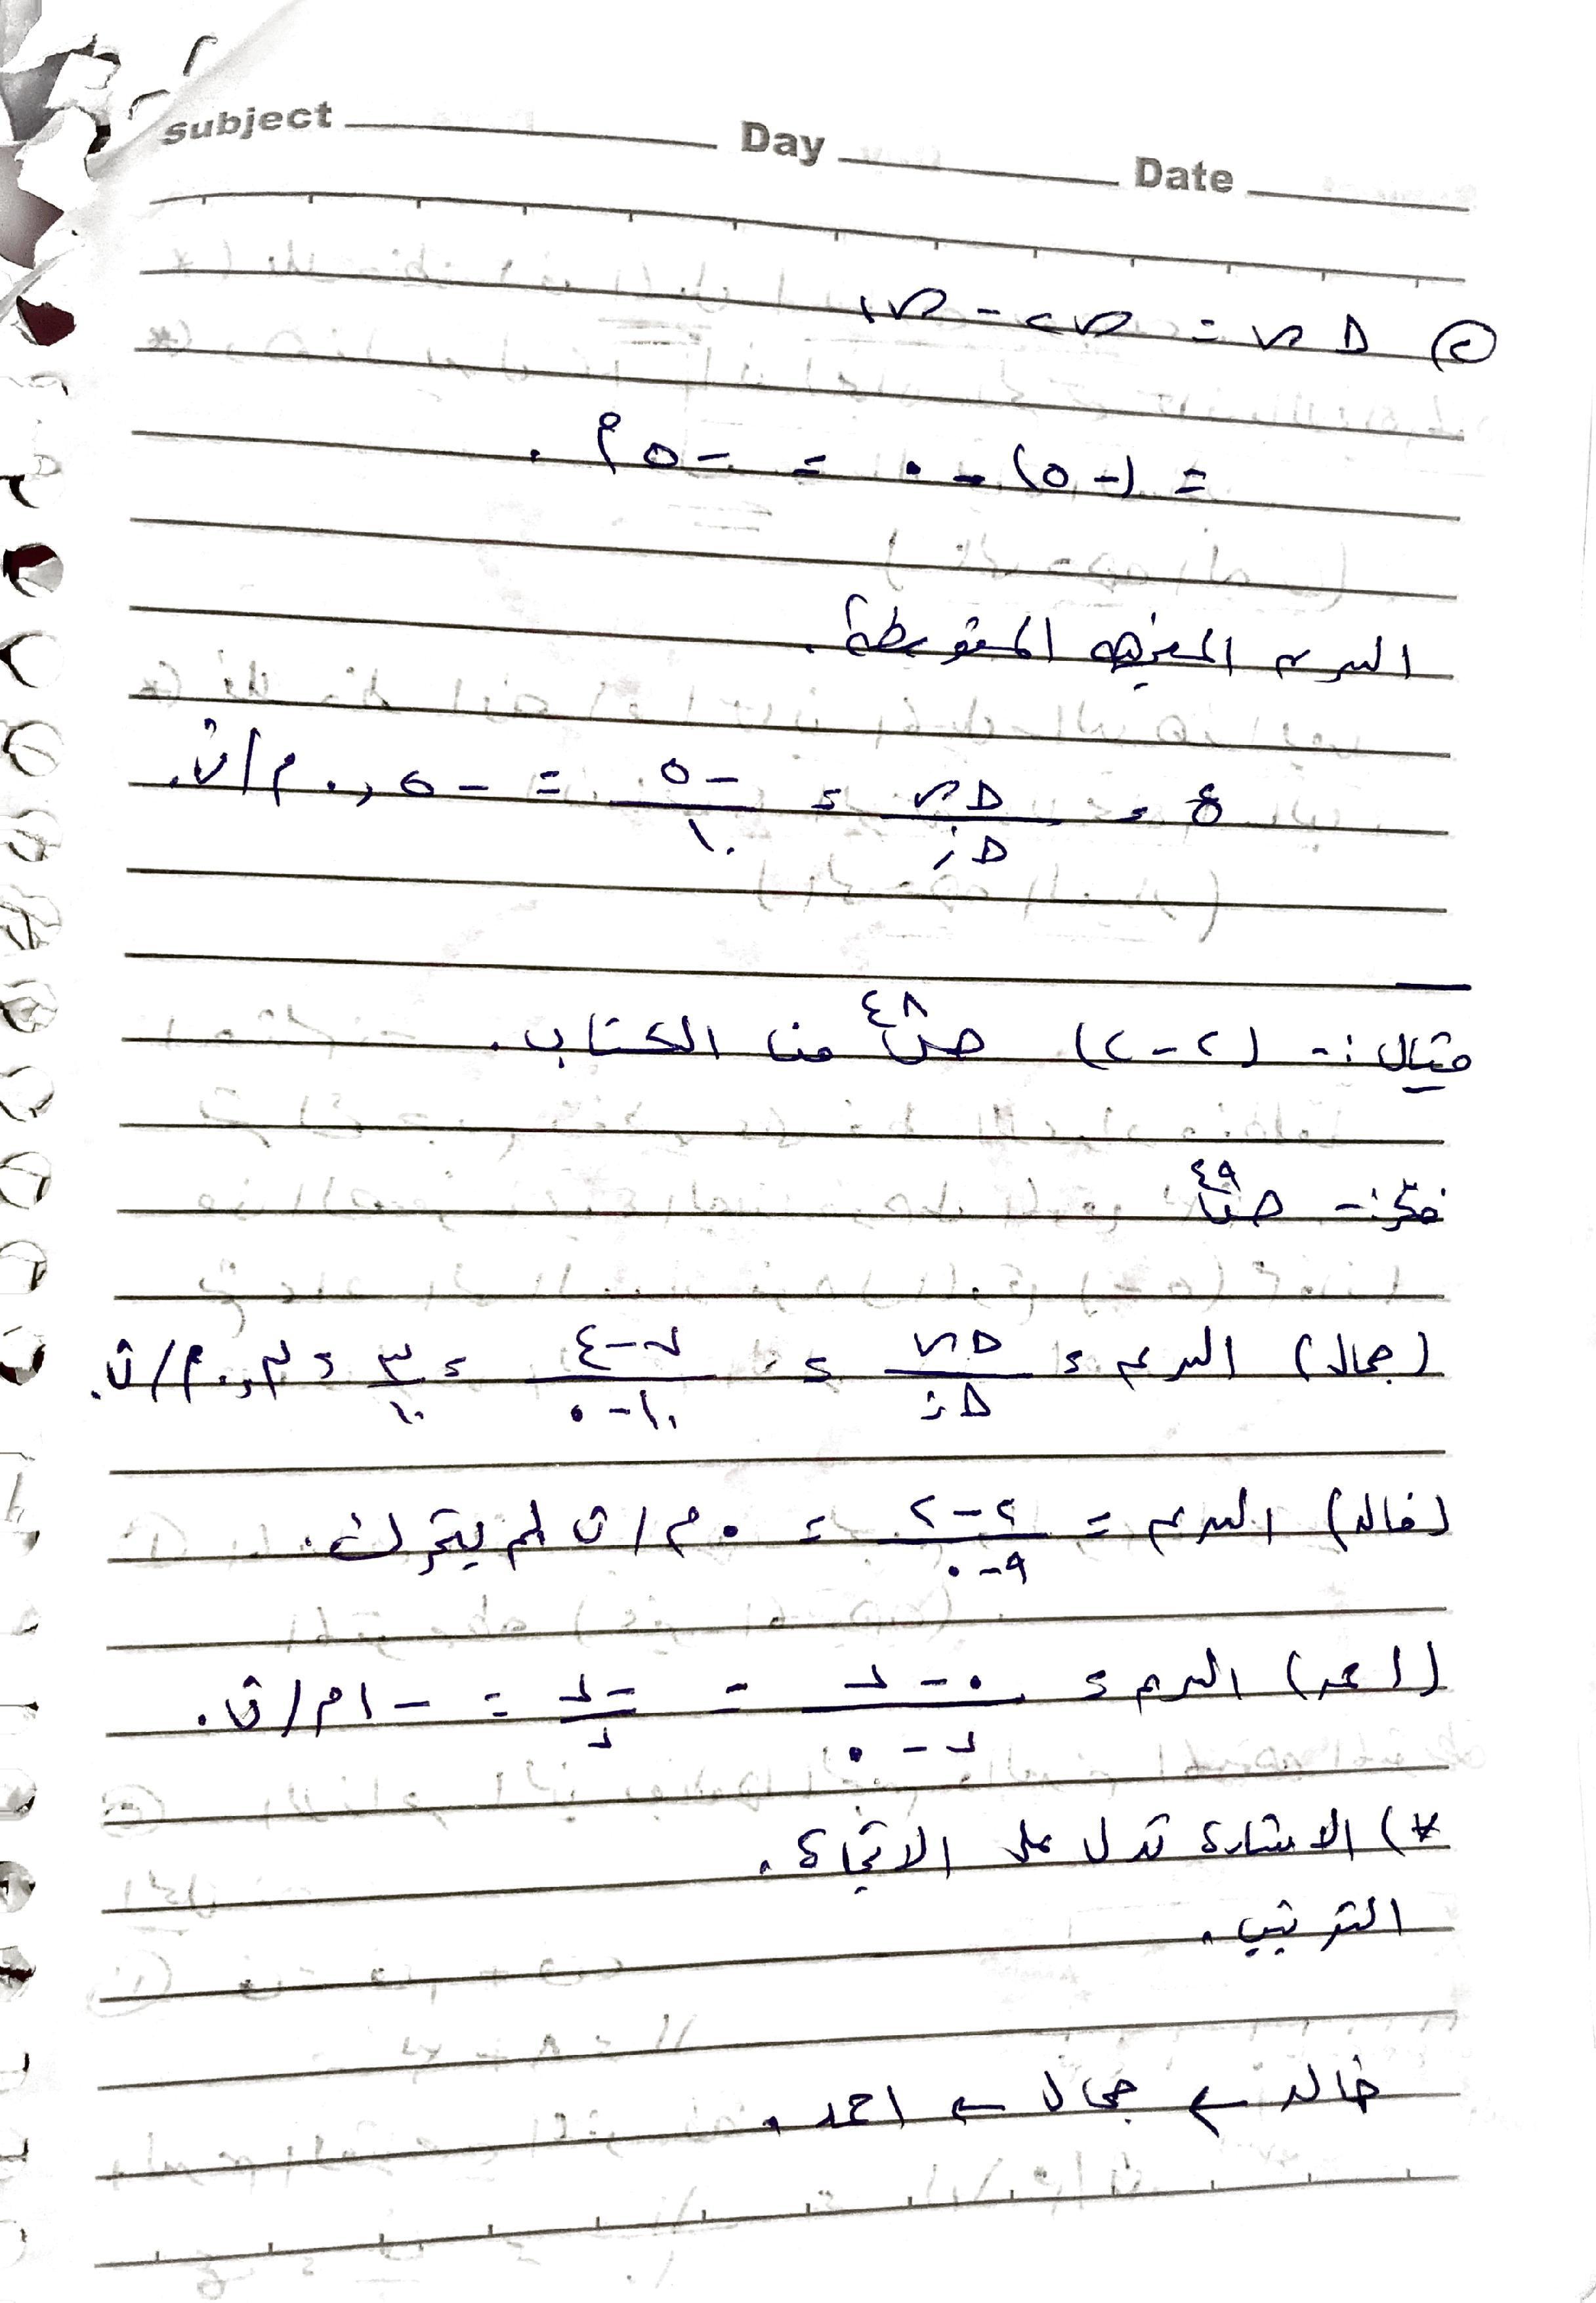 Subject Day Date
② Δس = س٢ - س١
= (-٥) - ٠ = -٥ م .
السرعه المتجهه المتوسطة .
ع = Δس/Δز = -٥/١٠ = -٠,٥ م/ث.
مثال :- (٢-٢) صـ٤٨ من الكتاب .
فكر:- صـ٤٩
(جمال) السرعه = Δس/Δز = ٧-٤/١٠-٠ = ٣/١٠ = ٠,٣ م/ث.
(خالد) السرعه = ٢-٢/٩-٠ = ٠ م/ث لم يتحرك .
(احمد) السرعه = ٠-٦/٦-٠ = -٦/٦ = -١ م/ث .
*) الاشارة تدل على الاتجاة .
الترتيب .
خالد ← جمال ← احمد .